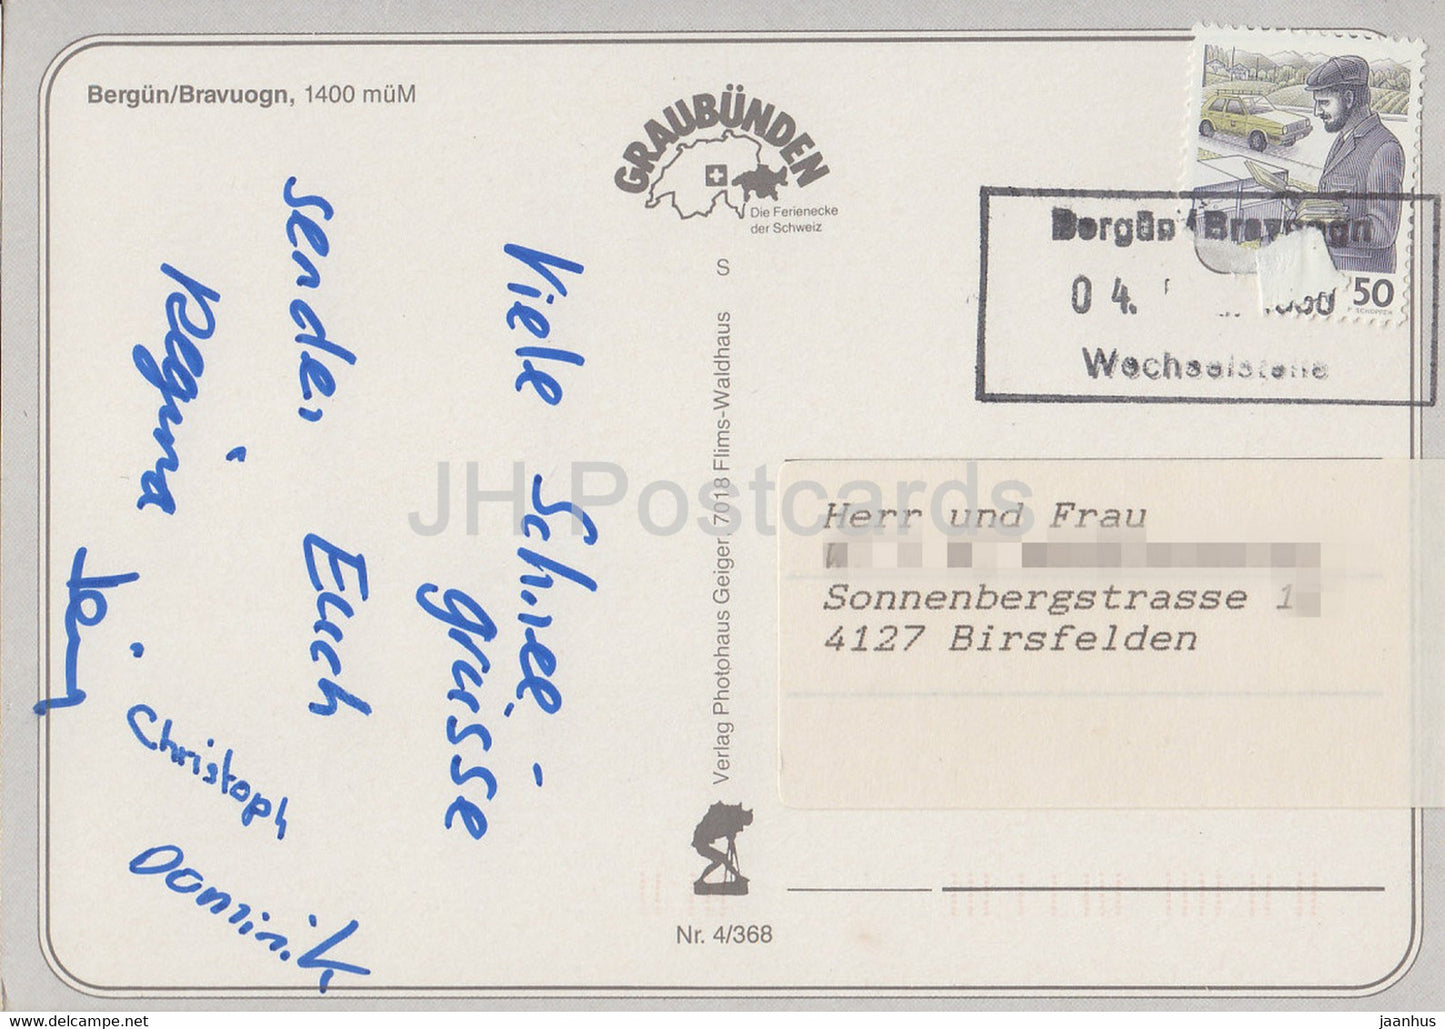 Bergün/Bravuogn, 1400 müM
GRAUBÜNDEN
Die Ferienecke
der Schweiz
Viele Schnee
grüsse
senden
Euch
Regina
Christoph
Dominik
S
Verlag Photohaus Geiger, 7018 Flims-Waldhaus
Nr. 4/368
50
P. SCHOPFER
Bergün/Bravuogn
04.
Wechselstelle
Herr und Frau
W
Sonnenbergstrasse 1
4127 Birsfelden
JH Postcards
www.delcampe.net
jaanhus